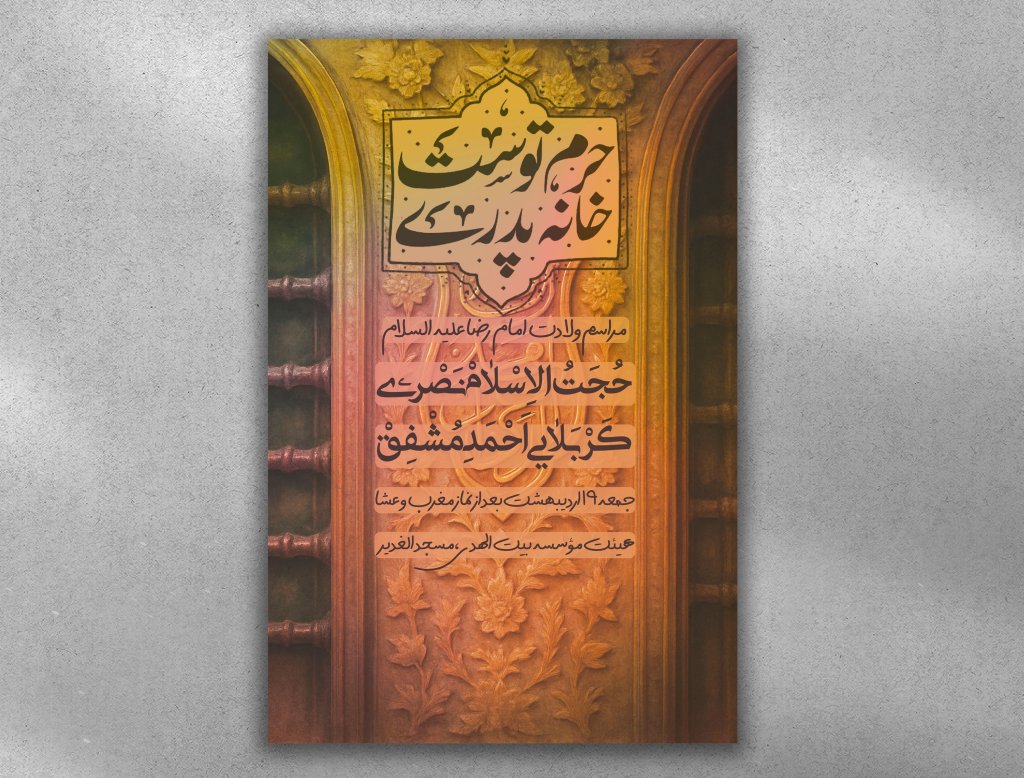 حرم توست
خانه پدری
مراسم ولادت امام رضا علیه السلام
حُجَتُ الاِسْلامْ نَصْرے
کَرْبَلایے اَحْمَدِ مُشْفِقْ
جمعه ۱۹ اردیبهشت بعد از نماز مغرب و عشا
هیئت مؤسسه بیت الهدی، مسجد الغدیر